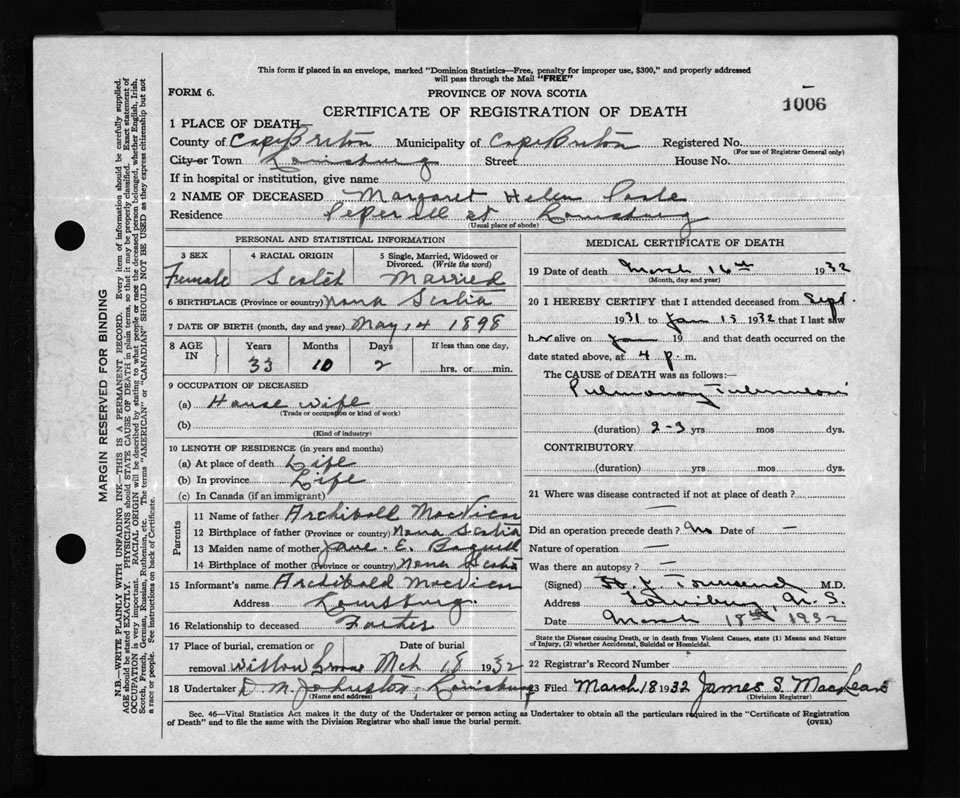 This form if placed in an envelope, marked "Dominion Statistics—Free, penalty for improper use, $300," and properly addressed
will pass through the Mail "FREE"
FORM 6.
PROVINCE OF NOVA SCOTIA
1006
CERTIFICATE OF REGISTRATION OF DEATH
1 PLACE OF DEATH
County of Cape Briton Municipality of Cape Briton Registered No.
(For use of Registrar General only)
City or Town Louisburg Street House No.
If in hospital or institution, give name
2 NAME OF DECEASED Margaret Helen
Residence st Louisburg
(Usual place of abode)
PERSONAL AND STATISTICAL INFORMATION
3 SEX 4 RACIAL ORIGIN 5 Single, Married, Widowed or
Divorced. (Write the word)
Female Scotch Married
6 BIRTHPLACE (Province or country) Nova Scotia
7 DATE OF BIRTH (month, day and year) May 14 1898
8 AGE IN Years Months Days If less than one day,
33 10 2 hrs. or min.
9 OCCUPATION OF DECEASED
(a) House wife
(Trade or occupation or kind of work)
(b)
(Kind of industry)
10 LENGTH OF RESIDENCE (in years and months)
(a) At place of death Life
(b) In province Life
(c) In Canada (if an immigrant)
Parents
11 Name of father Archibald MacVicar
12 Birthplace of father (Province or country) Nova Scotia
13 Maiden name of mother Jane E. Bagnell
14 Birthplace of mother (Province or country) Nova Scotia
15 Informant's name Archibald MacVicar
Address Louisburg
16 Relationship to deceased Father
17 Place of burial, cremation or Date of burial
removal Willow Grove Mch 18 1932
18 Undertaker D. N. Johnston, Louisburg
(Name and address)
MEDICAL CERTIFICATE OF DEATH
19 Date of death March 16th 1932
(Month, day and year)
20 I HEREBY CERTIFY that I attended deceased from Sept.
1931 to Jan 15 1932 that I last saw
her alive on Jan 19 and that death occurred on the
date stated above, at 4 p. m.
The CAUSE OF DEATH was as follows:—
Pulmonary Tuberculosis
(duration) 2-3 yrs mos dys.
CONTRIBUTORY
(duration) yrs mos dys.
21 Where was disease contracted if not at place of death? —
Did an operation precede death? No Date of —
Nature of operation —
Was there an autopsy? —
(Signed) Townsend M.D.
Address Louisburg, N. S.
Date March 18th, 1932
State the Disease causing Death, or in death from Violent Causes, state (1) Means and Nature
of Injury, (2) whether Accidental, Suicidal or Homicidal.
22 Registrar's Record Number
23 Filed March 18 1932 James S. MacLean
(Division Registrar)
Sec. 46—Vital Statistics Act makes it the duty of the Undertaker or person acting as Undertaker to obtain all the particulars required in the "Certificate of Registration
of Death" and to file the same with the Division Registrar who shall issue the burial permit.
(OVER)
MARGIN RESERVED FOR BINDING
N.B.—WRITE PLAINLY WITH UNFADING INK—THIS IS A PERMANENT RECORD. Every item of information should be carefully supplied.
AGE should be stated EXACTLY. PHYSICIANS should STATE CAUSE OF DEATH in plain terms, so that it may be properly classified. Exact statement of
OCCUPATION is very important. RACIAL ORIGIN will be described by stating to what people or race the deceased person belonged, whether English, Irish,
Scotch, French, German, Russian, Ruthenian, etc. The terms "AMERICAN" or "CANADIAN" SHOULD NOT BE USED as they express citizenship but not
a race or people. See instructions on back of Certificate.